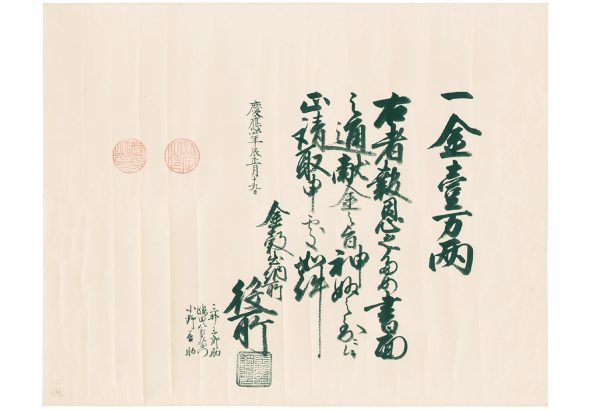 一金壹万両
右者報恩之ため書面
之通献金之旨神妙之至ニ
正請取申処如件
慶應四年辰正月十九日
金穀出納所
役所
三井三郎助
嶋田八郎左衛門
小野善助